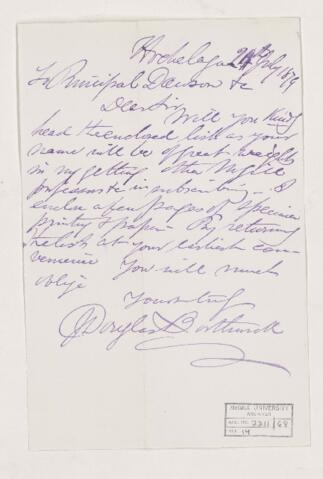 Hochelaga 24th July 1879
To Principal Dawson &c
Dear Sir
Will you kindly
head the enclosed list as your
name will be of great weight
in my getting other McGill
professors &c in subscribing - I
enclose a few pages of specimen
printing & paper - By returning
the list at your earliest con-
venience You will much
oblige
Yours truly
J Douglas Borthwick
McGILL UNIVERSITY
ARCHIVES
ACC. NO. 2211/68
REF. 14